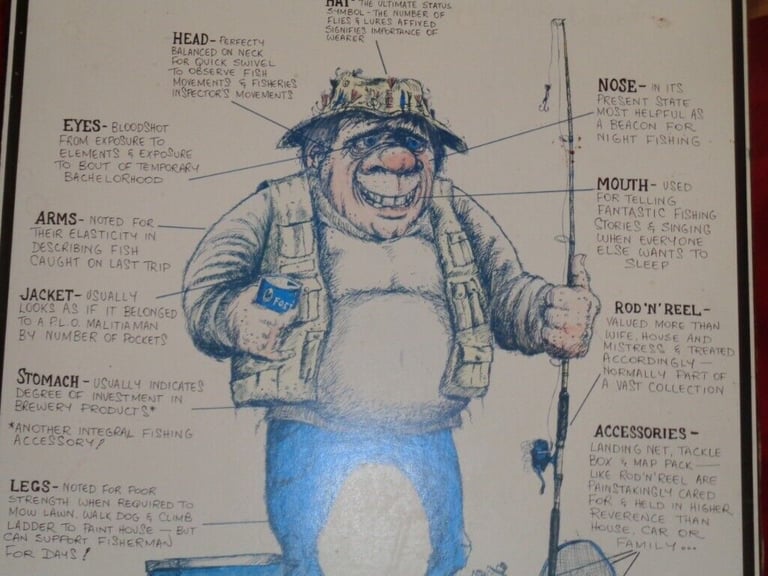 HAT- THE ULTIMATE STATUS
SYMBOL - THE NUMBER OF
FLIES & LURES AFFIXED
SIGNIFIES IMPORTANCE OF
WEARER
HEAD- PERFECTY
BALANCED ON NECK
FOR QUICK SWIVEL
TO OBSERVE FISH
MOVEMENTS & FISHERIES
INSPECTOR'S MOVEMENTS
NOSE- IN ITS
PRESENT STATE
MOST HELPFUL AS
A BEACON FOR
NIGHT FISHING
EYES- BLOODSHOT
FROM EXPOSURE TO
ELEMENTS & EXPOSURE
TO BOUT OF TEMPORARY
BACHELORHOOD
MOUTH- USED
FOR TELLING
FANTASTIC FISHING
STORIES & SINGING
WHEN EVERYONE
ELSE WANTS TO
SLEEP
ARMS- NOTED FOR
THEIR ELASTICITY IN
DESCRIBING FISH
CAUGHT ON LAST TRIP
JACKET- USUALLY
LOOKS AS IF IT BELONGED
TO A P.L.O. MALITIAMAN
BY NUMBER OF POCKETS
FOST
ROD'N'REEL-
VALUED MORE THAN
WIFE, HOUSE AND
MISTRESS & TREATED
ACCORDINGLY-
NORMALLY PART OF
A VAST COLLECTION
STOMACH- USUALLY INDICATES
DEGREE OF INVESTMENT IN
BREWERY PRODUCTS*
*ANOTHER INTEGRAL FISHING
ACCESSORY!
ACCESSORIES-
LANDING NET, TACKLE
BOX & MAP PACK-
LIKE ROD'N'REEL ARE
PAINSTAKINGLY CARED
FOR & HELD IN HIGHER
REVERENCE THAN
HOUSE, CAR OR
FAMILY...
LEGS- NOTED FOR POOR
STRENGTH WHEN REQUIRED TO
MOW LAWN, WALK DOG & CLIMB
LADDER TO PAINT HOUSE - BUT
CAN SUPPORT FISHERMAN
FOR DAYS!